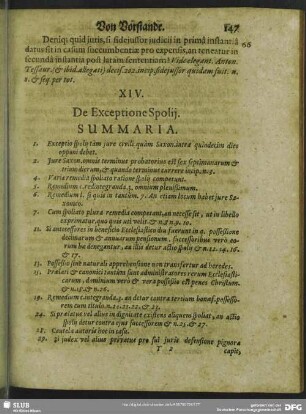 Von Vorstande. 147
Deniq; quid juris, si fidejussor judicii in primâ instantiâ 66
datus sit in casum succumbentiæ pro expensis, an teneatur in
secundâ instantia post latam sententiam? Vide elegant. Anton.
Tessaur. (& ibid. allegati) decis. 202. incip. fidejussor quidam fuit. n.
1. & seq. per tot.
XIV.
De Exceptione Spolij.
SUMMARIA.
1. Exceptio spolij tàm jure civili quàm Saxon. intra quindecim dies
opponi debet.
2. Jure Saxon. omnis terminus probatorius est sex septimanarum &
trium dierum, & quando terminus currere incip. n. 3.
4. Varia remedia spoliato ratione spolij competunt.
5. Remedium c. redintegranda 3. omnium plenissimum.
6. Remedium l. si quis in tantum. 7. An etiam locum habet jure Sa-
xonico.
7. Cum spoliato plura remedia competant, an necesse sit, ut in libello
exprimatur, quo actor uti velit & n. 8. n. 9. n. 10.
11. Si antecessores in beneficio Ecclesiastico diu fuerunt in q. possessione
dominarum & annuarum pensionum. successoribus verò eo-
rum ea denegantur, an iis detur actio spolii & n. 12. 14. 16.
& 17.
13. Possessio sine naturali apprehensione non transfertur ad heredes.
15. Prælati & canonici tantùm sunt administratores rerum Ecclesiasti-
carum, dominium verò & vera possessio est penes Christum.
& n. 18. & n. 26.
19. Remedium c. integranda 3. an detur contra tertium bonæ f. possesso-
rem cum titulo. n. 20. 21. 22. & 23.
24. Si prælatus vel alius in dignitate existens aliquem spoliat, an actio
spolij detur contra ejus successorem & n. 25. & 27.
28. Cautela autoris hoc in casu.
29. Si judex vel alius privatus pro sui juris defensione pignora
T 2 capit,
SLUB
DFG